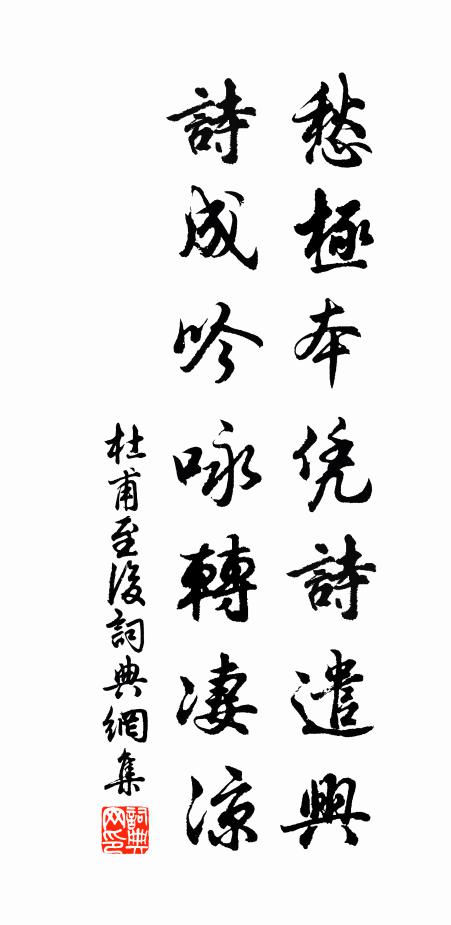 愁極本凭詩遣興
詩成吟咏轉凄涼
杜甫至後詞典網集
詞典网印